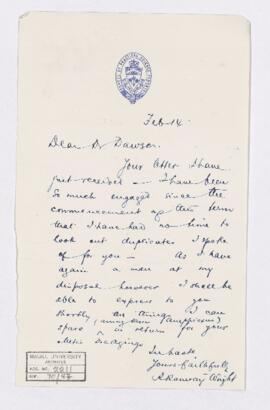 Feb 14
Dear Dr Dawson.
Your letter I have
just received — I have been
so much engaged since the
commencement of the term
that I have had no time to
look out duplicates I spoke
of for you — As I have
again a man at my
disposal however I shall be
able to express to you
shortly any things I can
spare (among them Amphioxus)
in return for your
In haste
Yours faithfully
R Ramsay Wright
McGILL UNIVERSITY
ARCHIVES
ACC. NO. 2211
REF.